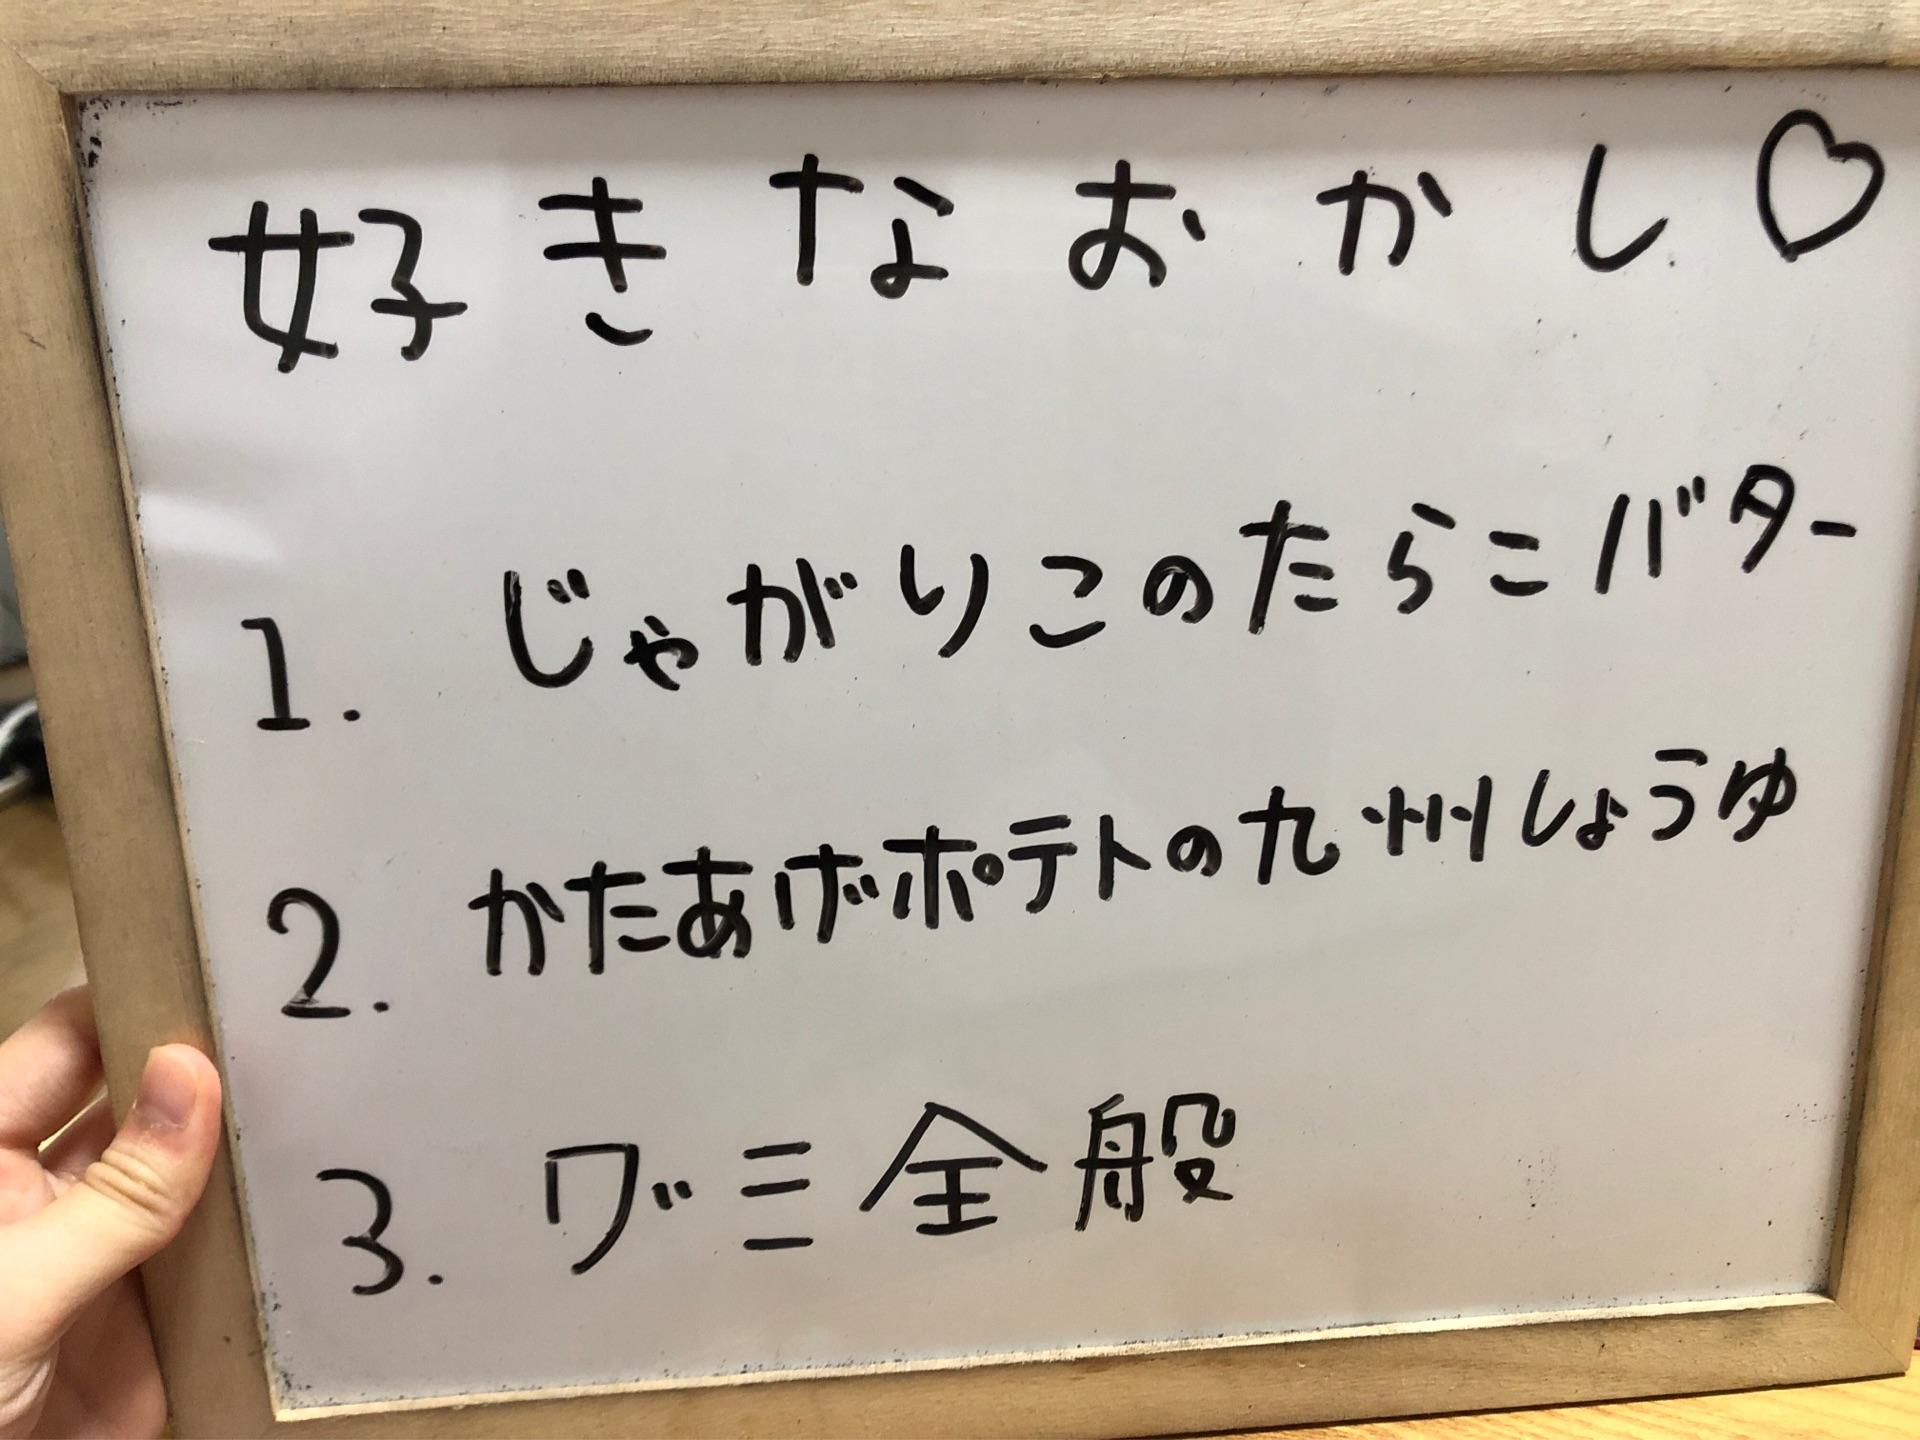 好きなおかし♡
1. じゃがりこのたらこバター
2. かたあげポテトの九州しょうゆ
3. グミ全般